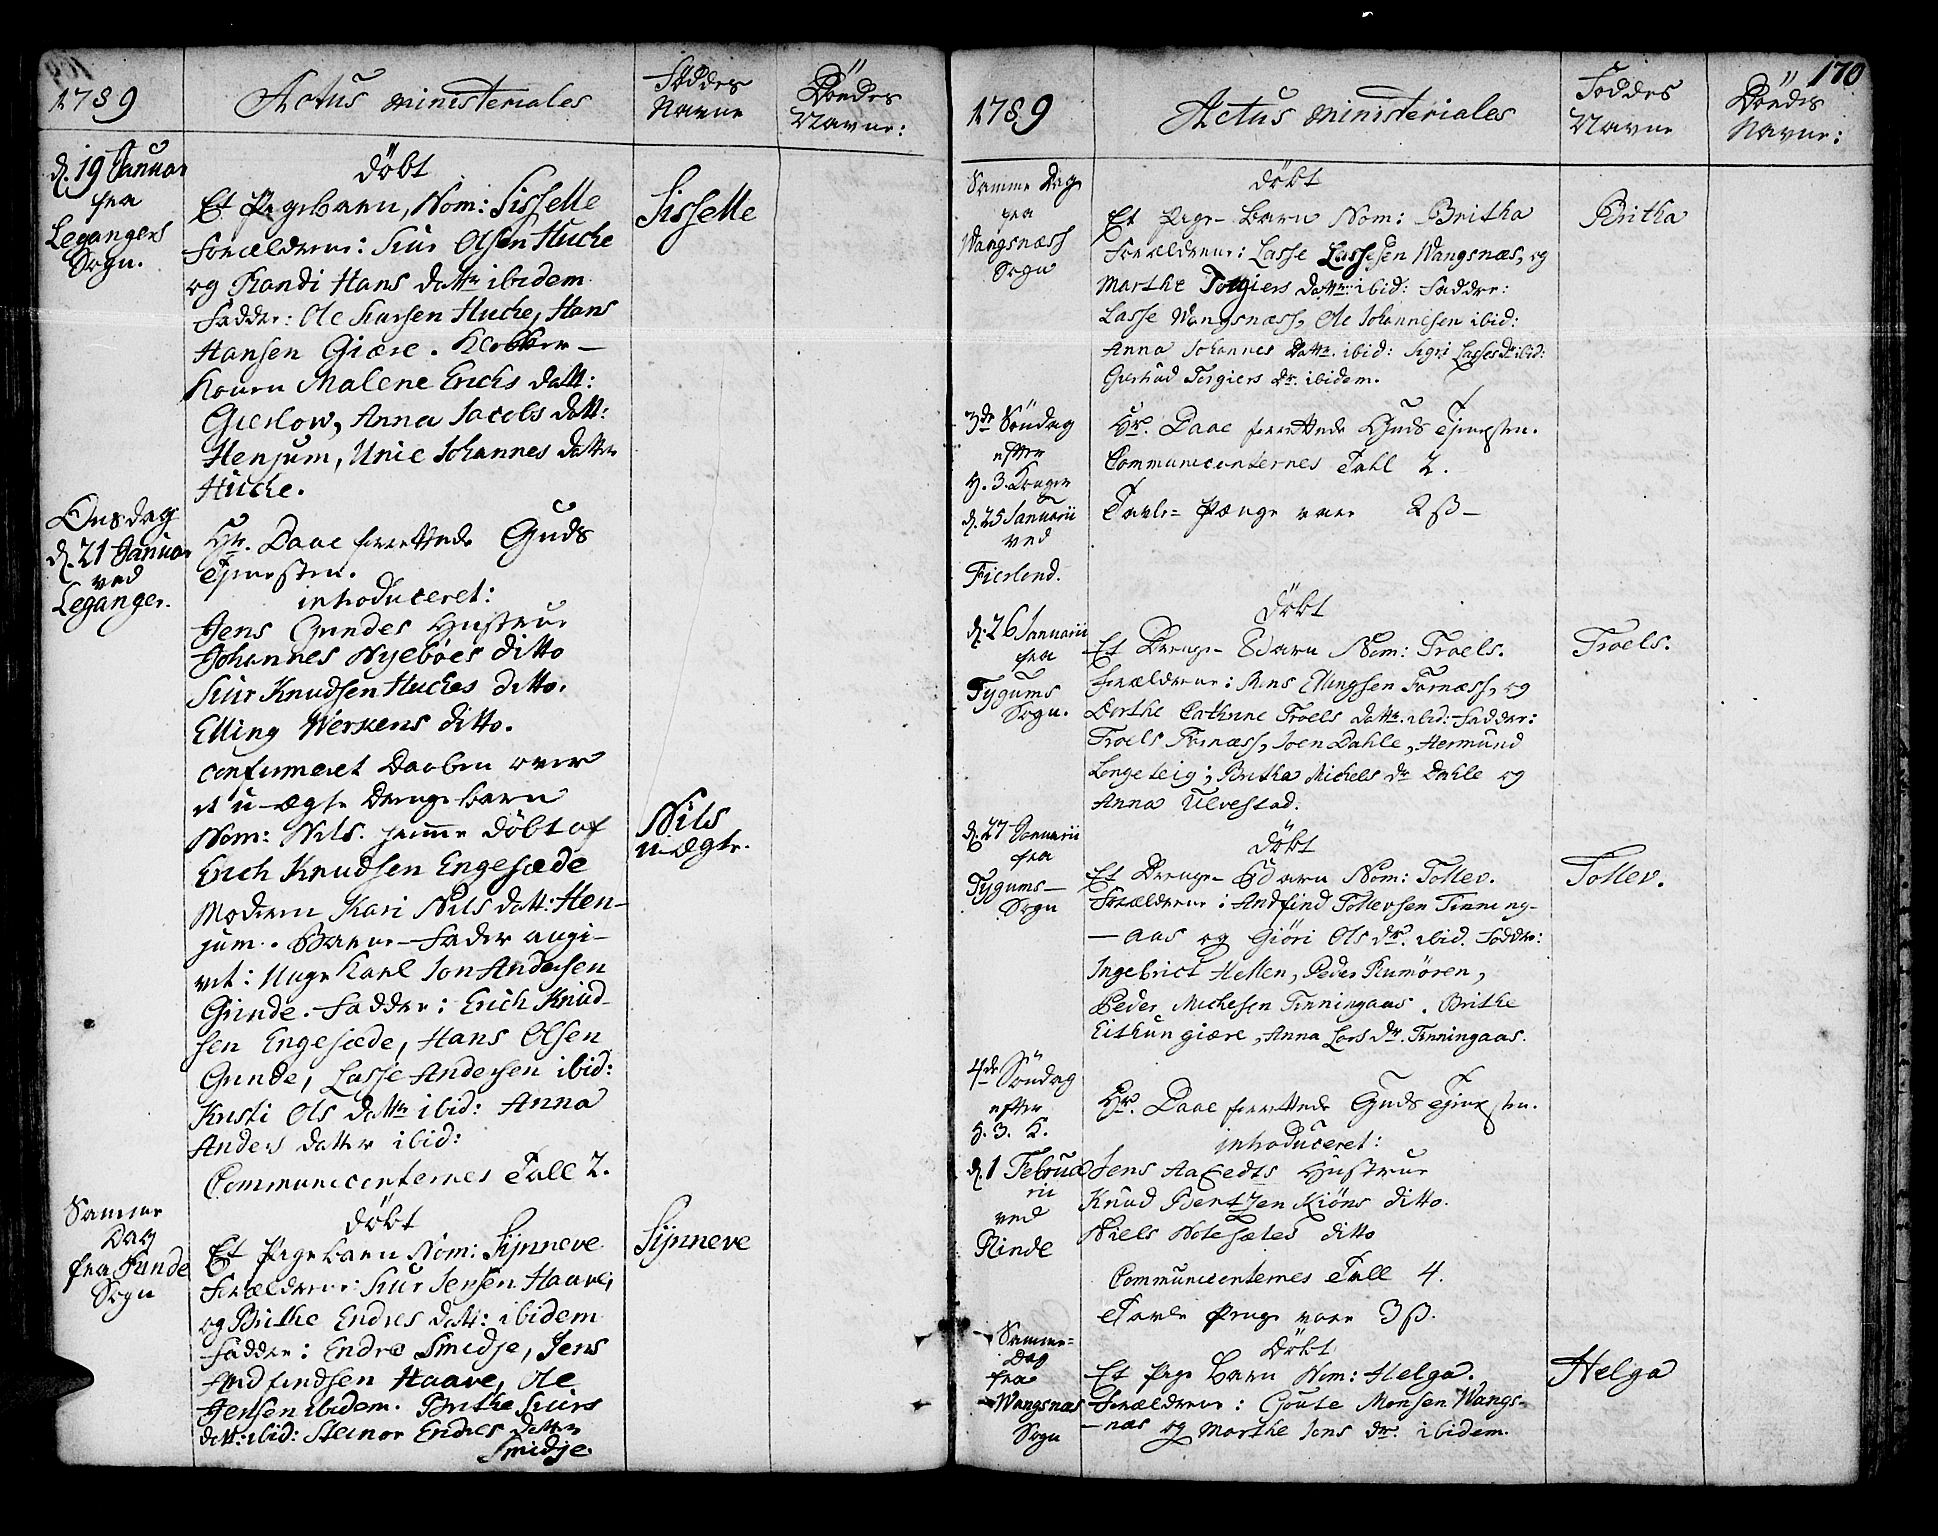 1789
Actus ministeriales
Føddes
Navne
Döedes
Navne:
d. 19 Januar
fra
Legangers
Sogn.
Döbt
Et Pigebarn, Nom: Sisselle
Forældrene: Siur Olsen Huche
og Randi Hans dattr ibidem
Fadder: Ole Siursen Huche, Hans
Hansen Giære. Klokker-
Konen Malene Erichs datt:
Gierlow, Anna Jacobs datt:
Henjum, Unie Johannes datter
Huche.
Sisselle
Onsdag
d. 21 Januar
ved
Leganger.
Hr. Daae forrettede Guds
Tjenesten.
introduceret:
Jens Gundes Hustrue
Johannes Nyebøes ditto
Siur Knudsen Huches ditto.
Elling Werkens ditto.
confirmeret Daaben over
et u-ægte Drenge barn
Nom: Nils. hiemme döbt af
Erich Knudsen Engesæde
Moderen Kari Nils datt: Hen-
jum. Barne-Fader angi-
vet: Unge Karl Jon Andersen
Grinde. Fadder: Erich Knud-
sen Engesæde, Hans Olsen
Grinde, Lasse Andersen ibid:
Kristi Ols dattr ibid: Anna
Anders datter ibid:
Communicanternes Tall 2.
Nils
u-ægte.
Samme
Dag
fra Rinde
Sogn
döbt
Et Pige barn Nom: Sijnneve
Forældrene: Siur Jensen Haave,
og Brithe Endres datt: ibidem
Fadder: Endre Smidje, Jens
Andfindsen Haave, Ole
Jensen ibidem. Brithe Siurs
datt: ibid: Steinor Endres datter
Smidje.
Sijnneve
170
1789
Actus ministeriales
Foddes
Navne
Döedes
Navne:
Samme Dag
fra
Wangsnæss
Sogn
döbt
Et Pige-barn Nom: Britha
Forældrene: Lasse Lassesen Wangsnæs, og
Marthe Torgiers dattr: ibid: Fadder:
Lasse Wangsnæss, Ole Johannesen ibid:
Anna Johannes Dattr. ibid: Sigri Lasses Dr ibid:
Giertrud Torgiers Dr. ibidem.
Britha
3de Söndag
efter
H. 3. Konger
d. 25 Januarii
ved
Fierlend.
Hr. Daae forrettede Guds Tjenesten.
Communicanternes Tall 2.
Tavle-Penge vare 2 ß-
d. 26 Januarii
fra
Tygums
Sogn.
döbt
Et Drenge-Barn Nom: Troels.
Forældrene: Jens Ellingsen Farnæss, og
Dorthe Cathrine Troels dattr. ibid: Fadder:
Troels Farnæss, Joen Dahle, Hermund
Longeteig; Britha Michels Dr Dahle og
Anna Ulvestad.
Troels.
d. 27 Januarii
fra
Tygums-
Sogn
döbt
Et Drenge-Barn Nom: Tollev.
Forældrene: Andfind Tollevsen Tinning-
-aas og Giöri Ols Dr. ibid. Fadder:
Ingebrict Hellen, Peder Rumören,
Peder Michelsen Tinningaas. Brithe
Eithun giære, Anna Lars Dr. Tinningaas.
Tollev.
4de Söndag
efter
H. 3. K.
d. 1 Februa
rii
ved
Rinde
Hr. Daae forrettede Guds Tjenesten.
introduceret:
Jens Hustrue
Knud Bentzen Kiöns ditto.
Niels Notesætes ditto
Communicanternes Tall 4.
Tavle Penge vare 3 ß.
Samme-
Dag
fra
Wangsnæs
Sogn
Döbt
Et Pige barn Nom: Helga.
Forældrene: Goute Monsen Wangs-
-næs og Marthe Jens Dr. ibidem.
Helga